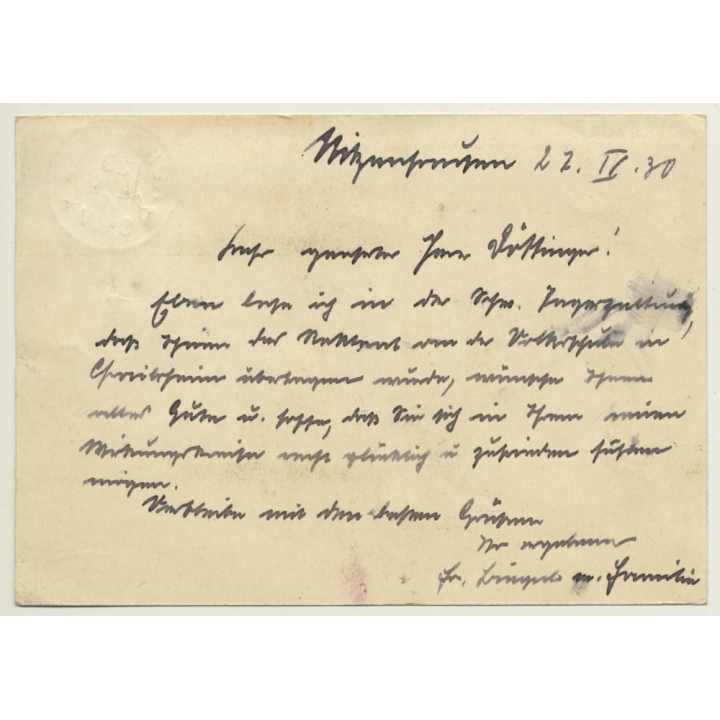 Nitzenhausen 27. IV. 30
Sehr geehrter Herr Döttinger!
Eben lese ich in der Schw. Jagerzeitung,
daß Ihnen das Rektorat an der Volksschule in
Crailsheim übertragen wurde, wünsche Ihnen
alles Gute u. hoffe, daß Sie sich in Ihrem neuen
Wirkungskreise recht glücklich u zufrieden fühlen
mögen.
Verbleibe mit den besten Grüßen
Ihr ergebener
Fr. u. Familie